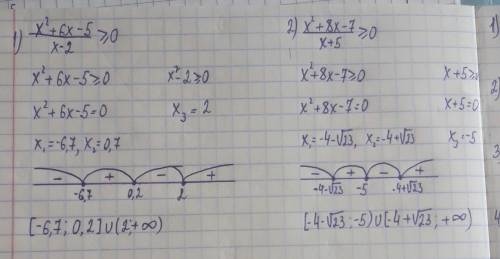 1) (x²+6x-5)/(x-2) ≥0
x²+6x-5≥0    x²-2≥0
x²+6x-5=0    x₃=2
x₁=-6,7, x₂=0,7
- + - +
-6,7 0,2 2
[-6,7; 0,2]∪(2;+∞)
2) (x²+8x-7)/(x+5) ≥0
x²+8x-7≥0    x+5≥
x²+8x-7=0    x+5=0
x₁=-4-√23, x₂=-4+√23    x₃=-5
- + - +
-4-√23 -5 -4+√23
[-4-√23; -5)∪[-4+√23; +∞)
1)
2)
3
4